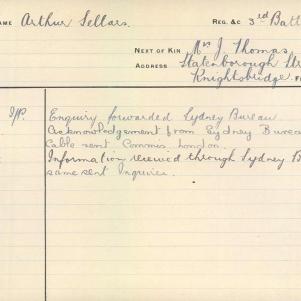 NAME Arthur Sellars. REG. &C 3rd Batt
NEXT OF KIN Mrs J. Thomas,
ADDRESS Statenborough Str
Knightsbridge.
Enquiry forwarded Sydney Bureau
Acknowledgement from Sydney Bureau
Cable sent Commis. London.
Information received through Sydney B
same sent Inquirer.